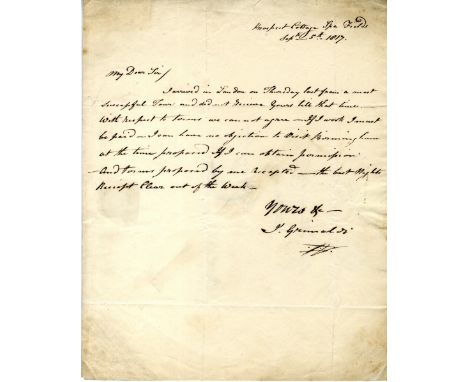 Prospect Cottage Spa Fields
Sepr. 5th. 1817.
My Dear Sir/
I arrived in London on Thursday last from a most
successful Tour and did not receive Yours till that time —
With respect to terms we cannot agree — If I work I must
be paid — I can have no objection to Visit Birmingham
at the time proposed If I can obtain permission
— And terms proposed by me accepted — the best Nights
Receipt Clear out of the Week —
Yours &c —
J. Grimaldi